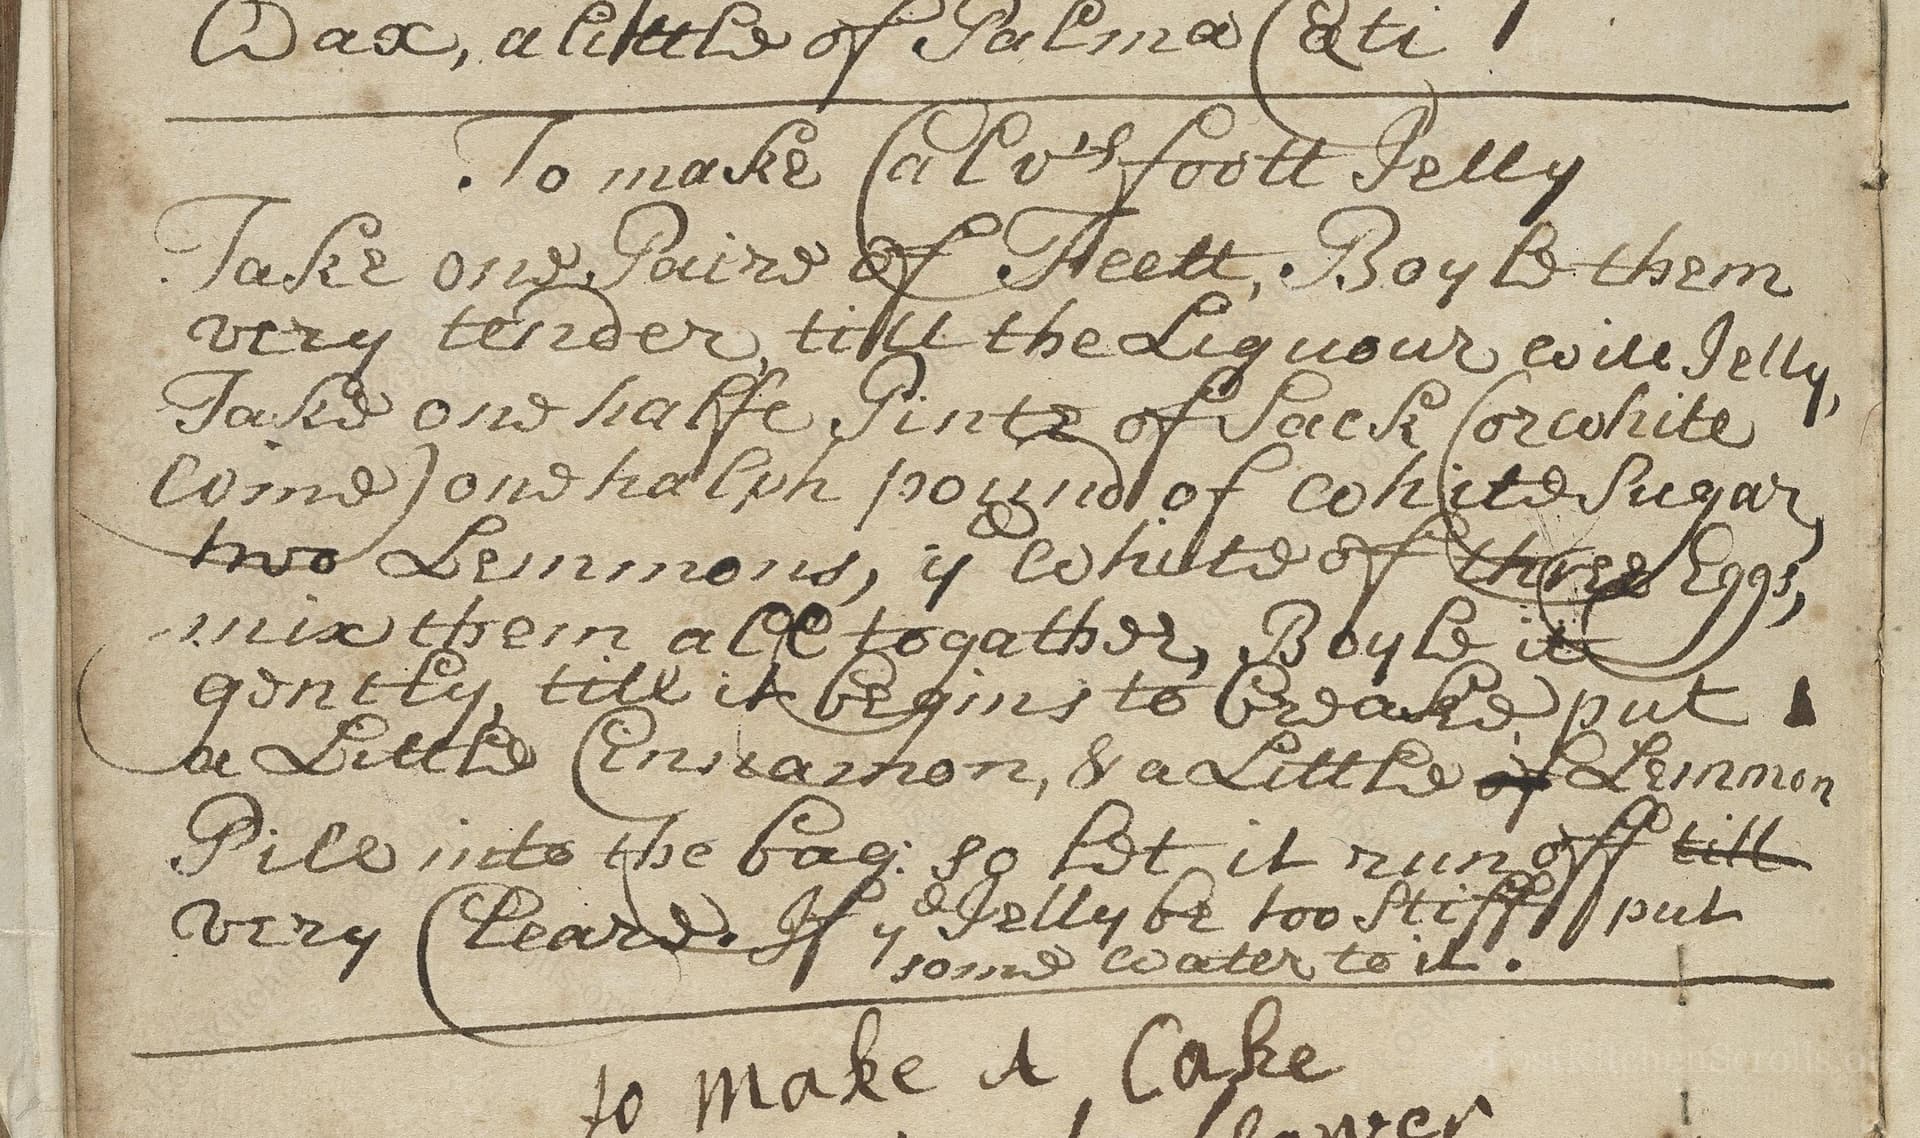 Wax, a little of Palma Cæti
To make Calvˢ foott Jelly
Take one Paire of Feett, Boyle them
very tender, till the Liquour will Jelly,
Take one halfe Pinte of Sack (or white
wine) one halph pound of white Sugar,
two Lemmons, yᵉ white of three Eggs,
mix them all togather, Boyle it
gently, till it begins to breake, put
a Little Cinnamon, & a Little of Lemmon
Pill into the bag: so let it run off till
very Cleare. If yᵉ Jelly be too Stiff put
some water to it.
to make A Cake